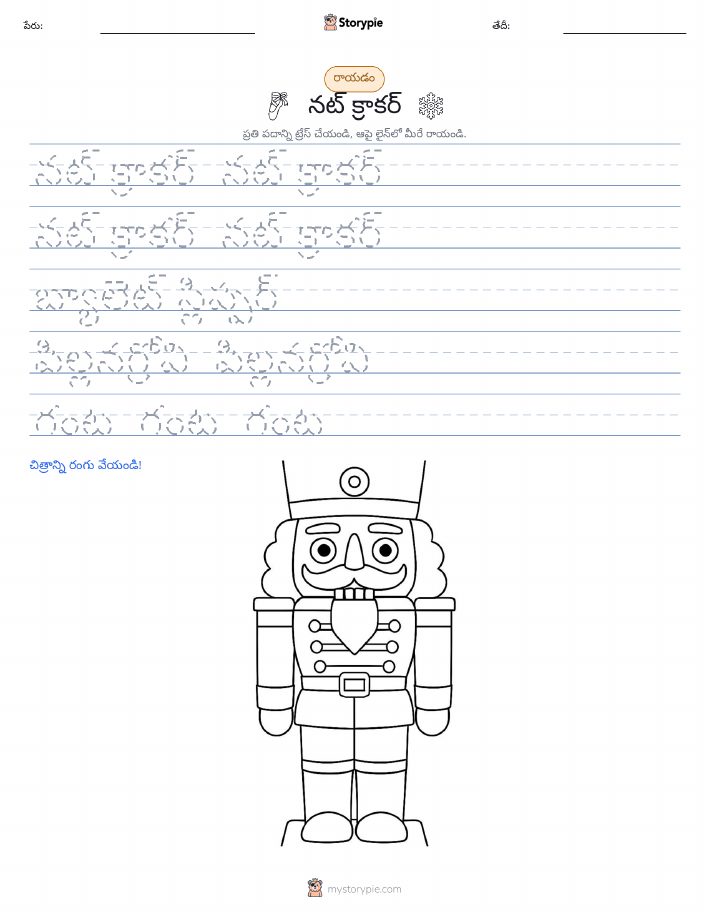 పేరు:
Storypie
తేదీ:
రాయడం
నట్ క్రాకర్
ప్రతి పదాన్ని ట్రేస్ చేయండి, ఆపై లైన్‌లో మీరే రాయండి.
నట్ క్రాకర్ నట్ క్రాకర్
నట్ క్రాకర్ నట్ క్రాకర్
బ్యాలెట్ స్లిప్పర్
పిల్లనగ్రోవి పిల్లనగ్రోవి
గంట గంట గంట
చిత్రాన్ని రంగు వేయండి!
mystorypie.com